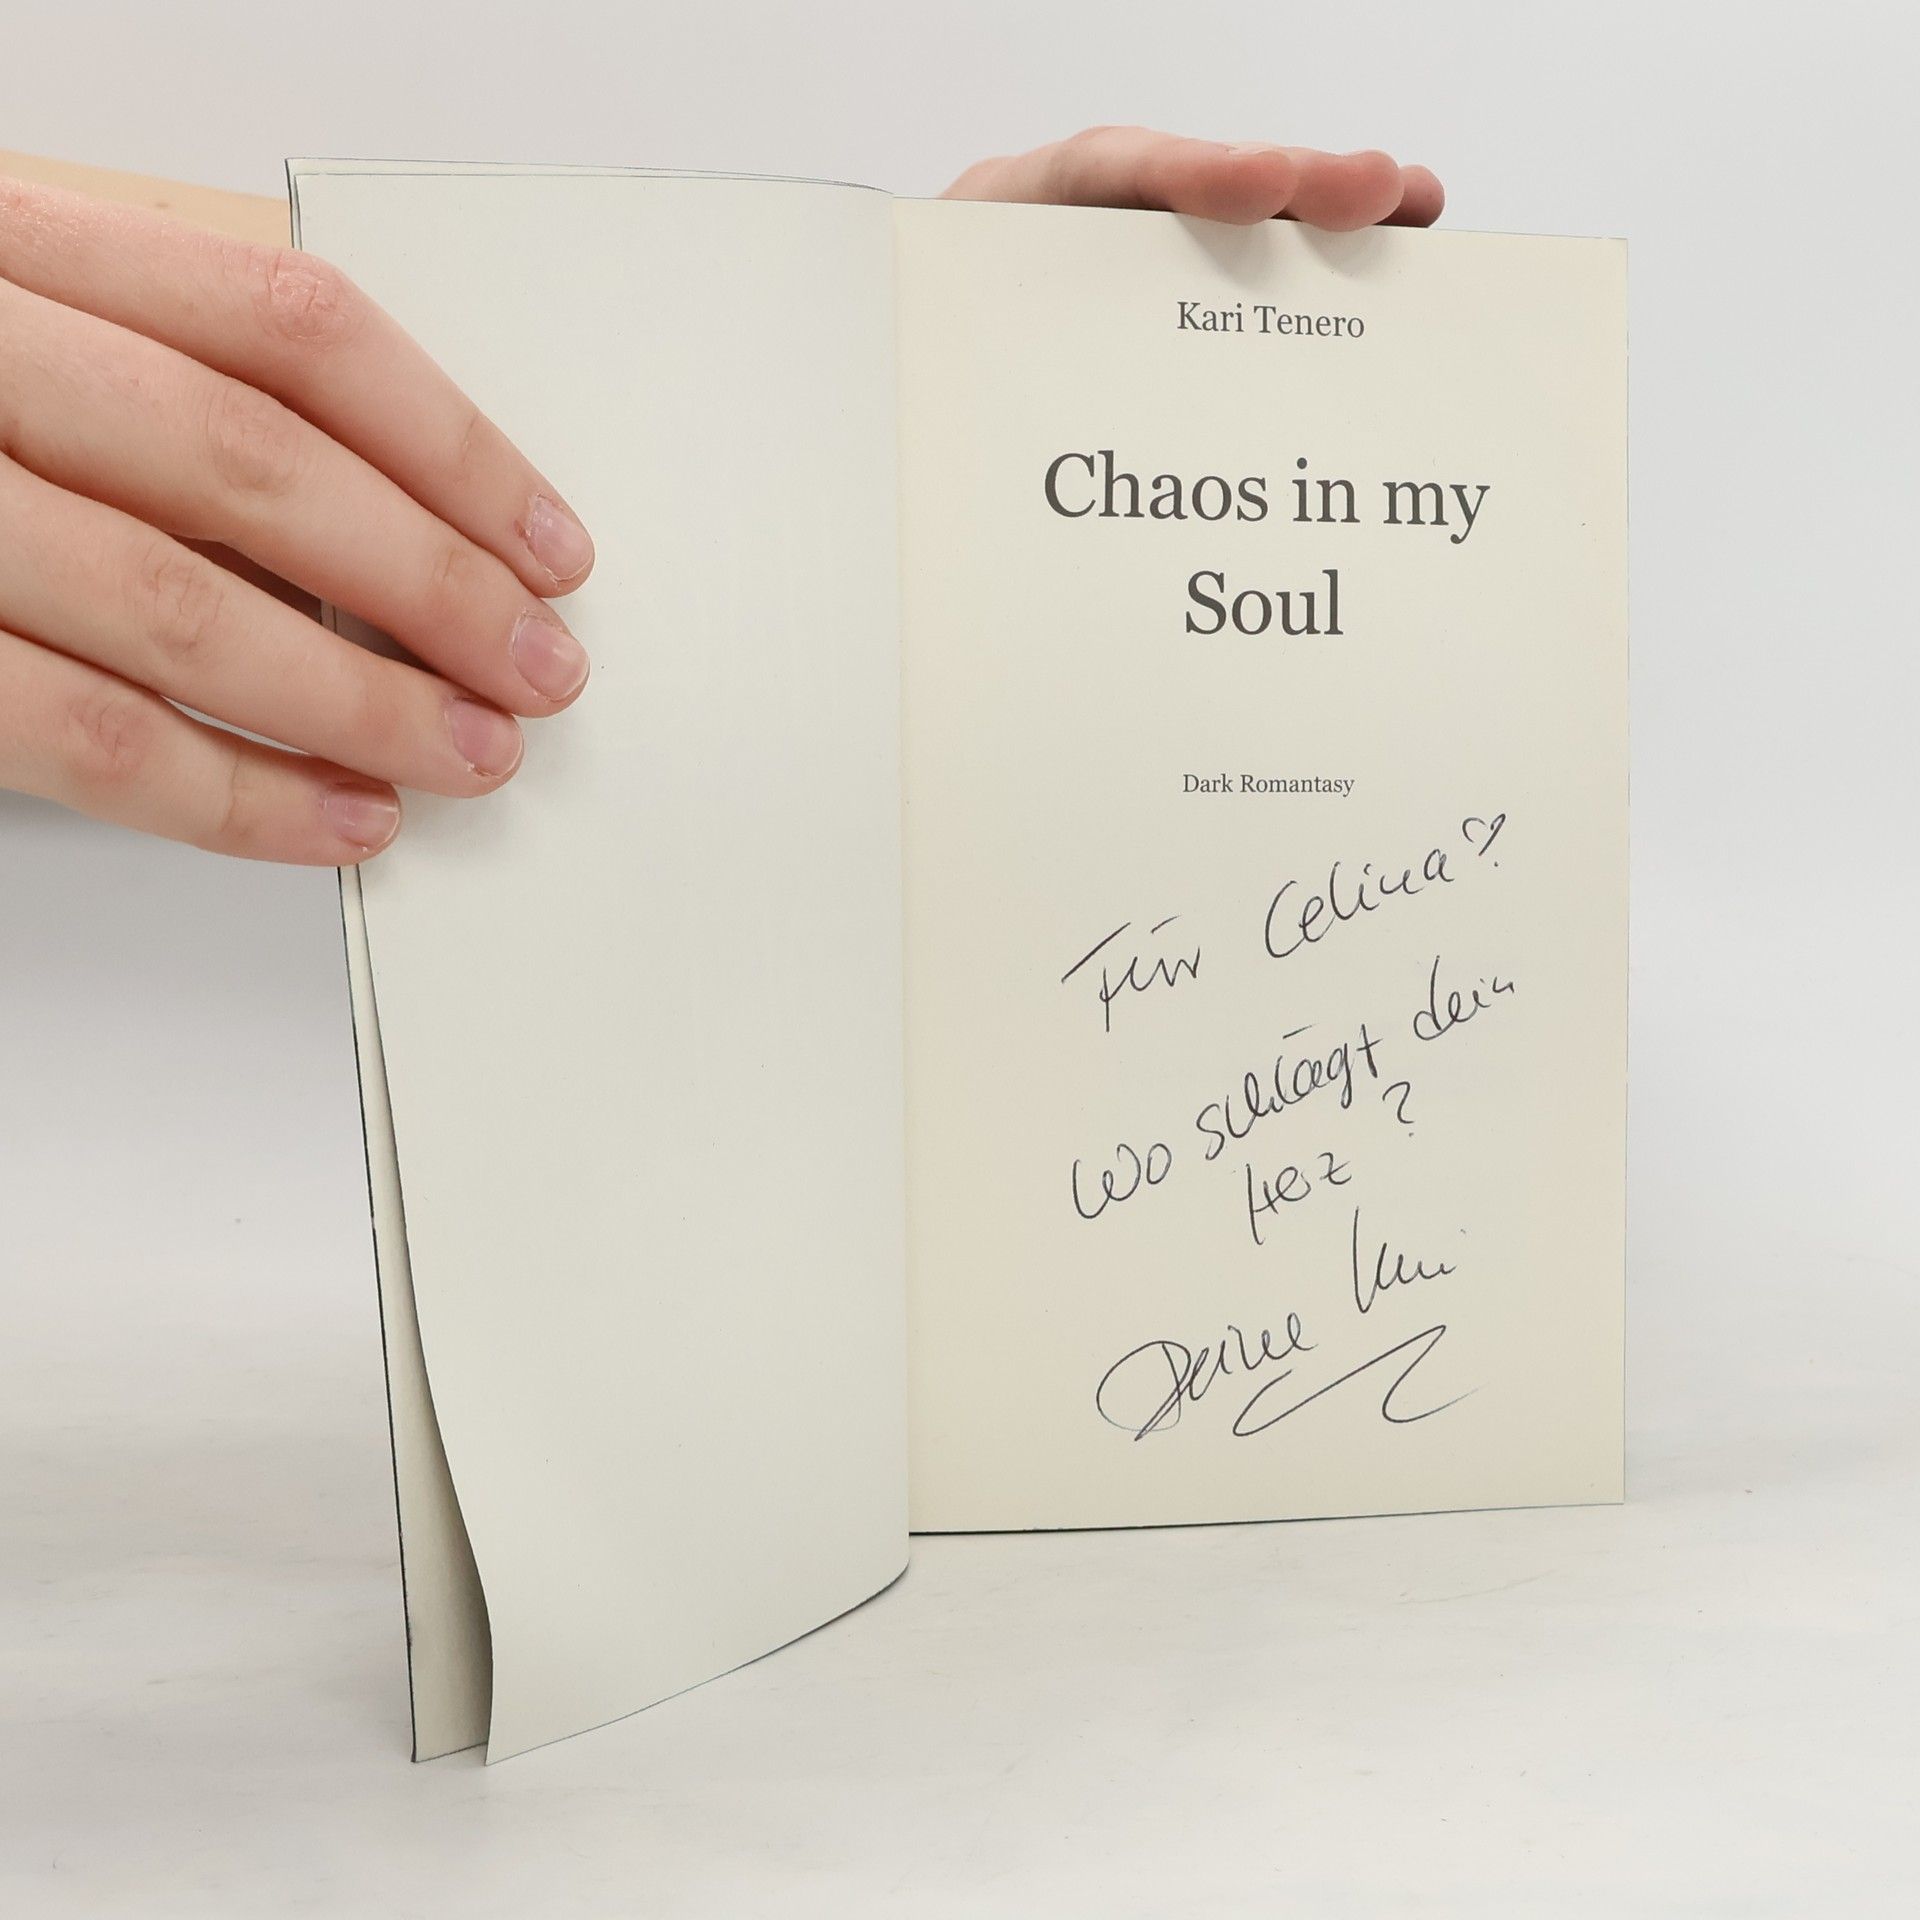 Kari Tenero
Chaos in my
Soul
Dark Romantasy
Für Celina ♡
Wo schlägt dein
Herz ?
Deine Kari